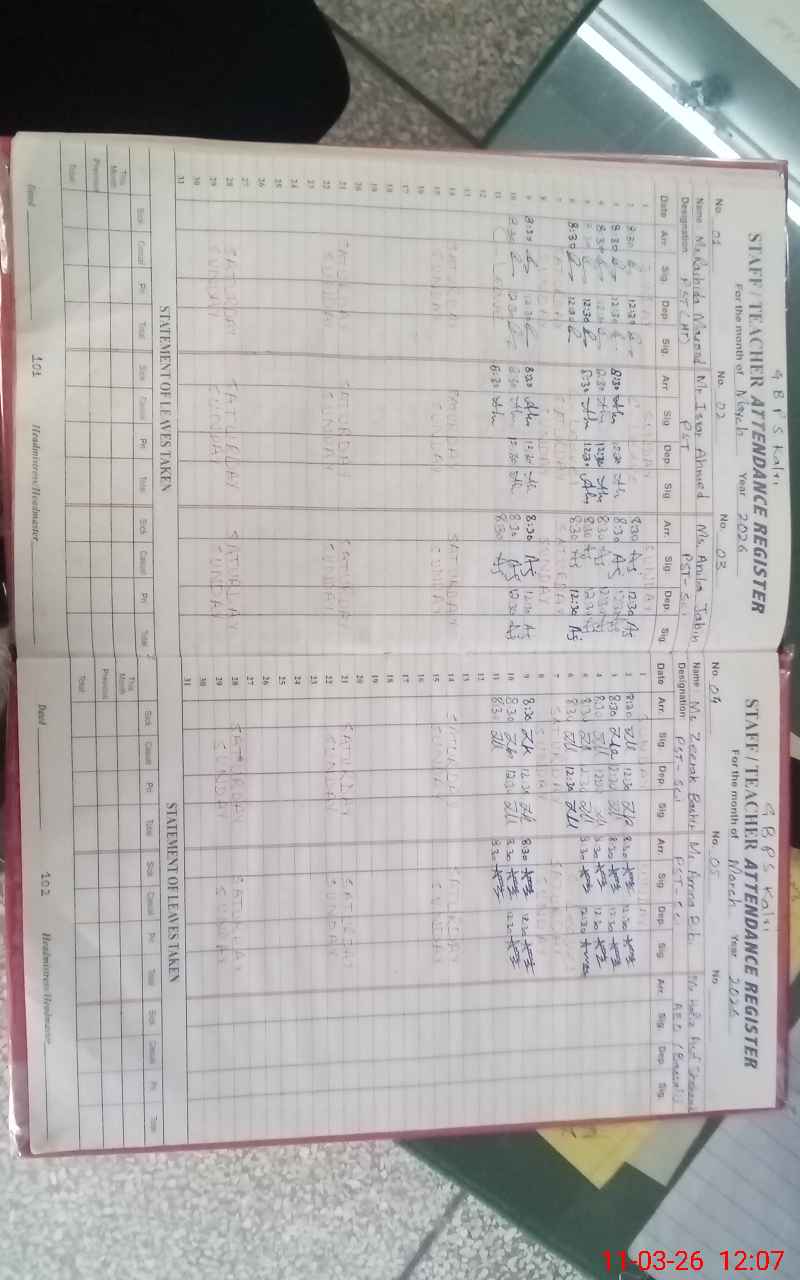 G B P S Kalri
STAFF / TEACHER ATTENDANCE REGISTER
For the month of March Year 2026
No. 01 No. 02 No. 03
Name Ms Rashida Masood Mr Israr Ahmed Ms Anila Jabin
Designation PST (HT) PST PST-SCI
Date Arr. Sig. Dep. Sig. Arr. Sig. Dep. Sig. Arr. Sig. Dep. Sig.
1 SUNDAY SUNDAY
2 8:30 12:30 8:30 12:30
3 8:30 12:30 8:30 12:30 8:30 12:30
4 8:30 12:30 8:30 12:30 8:30 12:30
5 8:30 12:30 8:30 12:30 8:30 12:30
6 8:30 12:30 8:30 12:30
7 SATURDAY SATURDAY SATURDAY
8 SUNDAY SUNDAY SUNDAY
9 8:30 12:30 8:30 12:30 8:30 12:30
10 8:30 12:30 8:30 12:30 8:30 12:30
11 8:30 8:30
12
13
14 SATURDAY SATURDAY SATURDAY
15 SUNDAY SUNDAY SUNDAY
16
17
18
19
20
21 SATURDAY SATURDAY SATURDAY
22 SUNDAY SUNDAY SUNDAY
23
24
25
26
27
28 SATURDAY SATURDAY SATURDAY
29 SUNDAY SUNDAY SUNDAY
30
31
STATEMENT OF LEAVES TAKEN
Sick Casual Pri Total Sick Casual Pri Total Sick Casual Pri Total
This Month
Previous
Total
Dated 101 Headmistress/Headmaster
G B P S Kalri
STAFF / TEACHER ATTENDANCE REGISTER
For the month of March Year 2026
No. 04 No. 05 No.
Name Ms Zeenak Bashir Ms
Designation PST-SCI PST-SCI
Date Arr. Sig. Dep. Sig. Arr. Sig. Dep. Sig. Arr. Sig. Dep. Sig.
1 SUNDAY SUNDAY
2 8:30 12:30 8:30 12:30
3 8:30 12:30 8:30 12:30
4 8:30 12:30 8:30 12:30
5 8:30 12:30 8:30 12:30
6 8:30 12:30
7 SATURDAY SATURDAY
8 SUNDAY SUNDAY
9 8:30 12:30 8:30 12:30
10 8:30 12:30 8:30 12:30
11 8:30 8:30
12
13
14 SATURDAY SATURDAY
15 SUNDAY SUNDAY
16
17
18
19
20
21 SATURDAY SATURDAY
22 SUNDAY SUNDAY
23
24
25
26
27
28 SATURDAY SATURDAY
29 SUNDAY SUNDAY
30
31
STATEMENT OF LEAVES TAKEN
Sick Casual Pri Total Sick Casual Pri Total Sick Casual Pri Total
This Month
Previous
Total
Dated 102 Headmistress/Headmaster
11-03-26 12:07